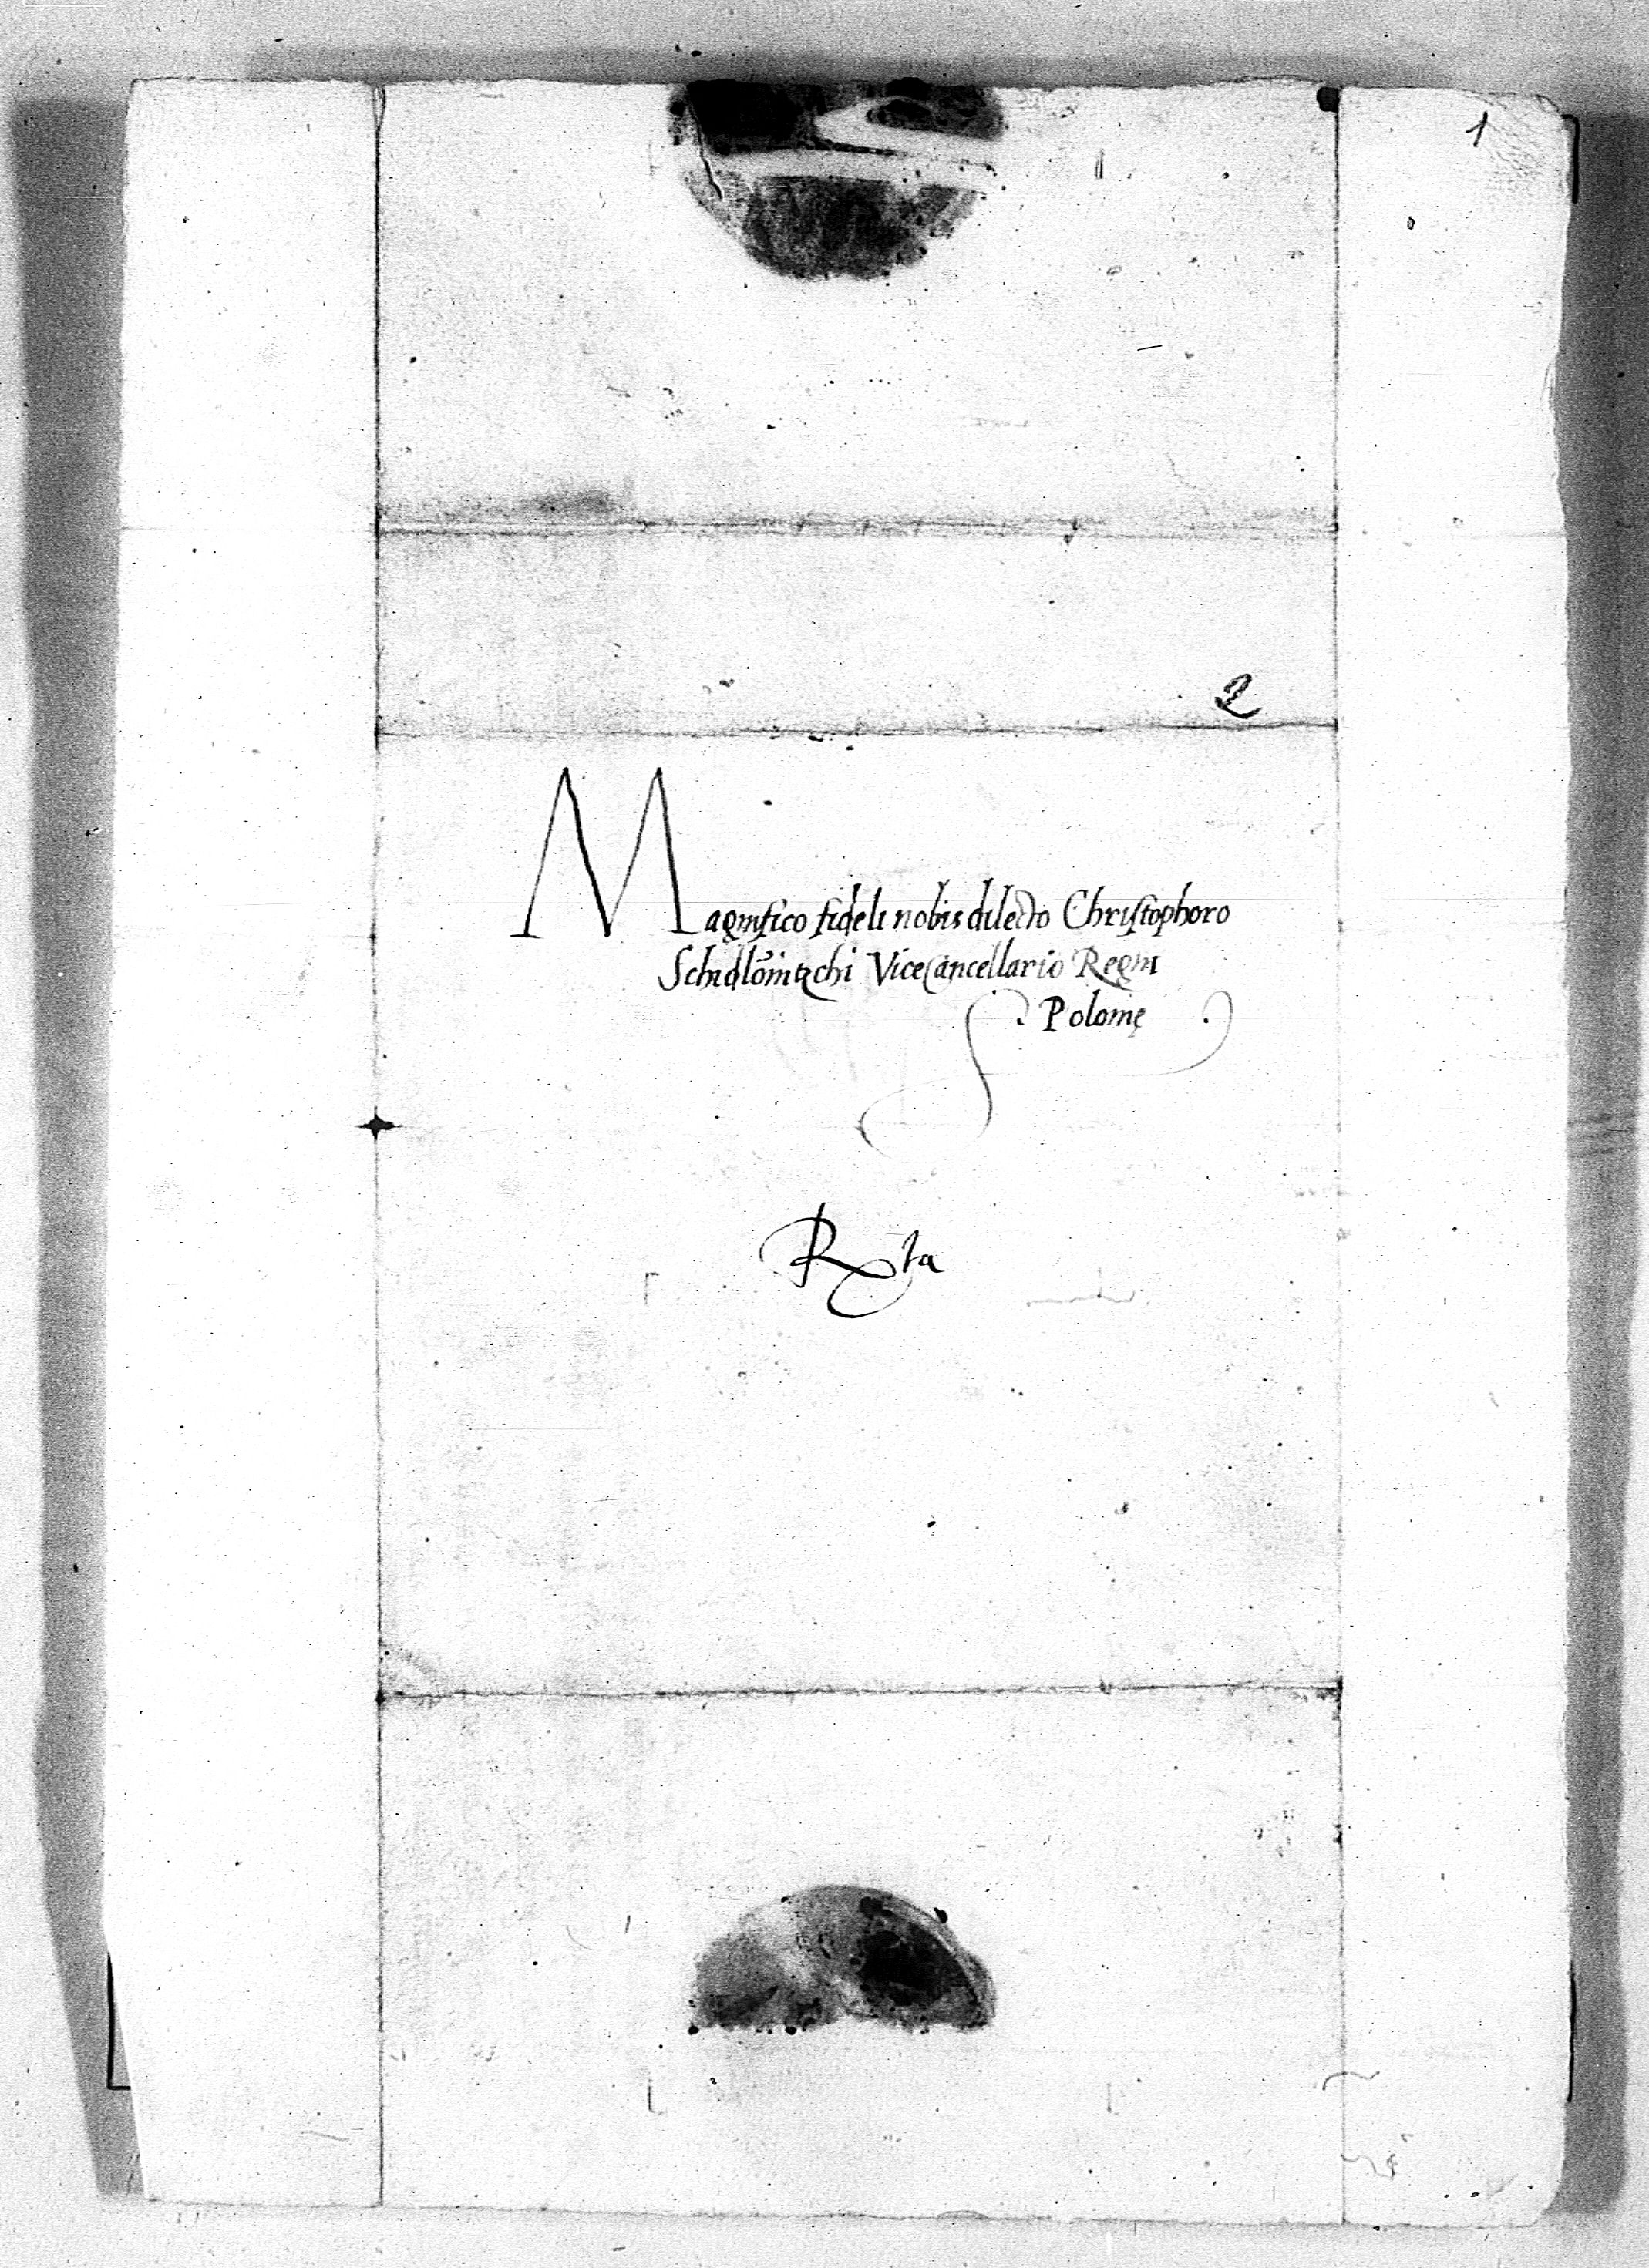 1
2
Magnifico fideli nobis dilecto Christophoro
Schidlouitzchi ViceCancellario Regni
Polonię
Rta